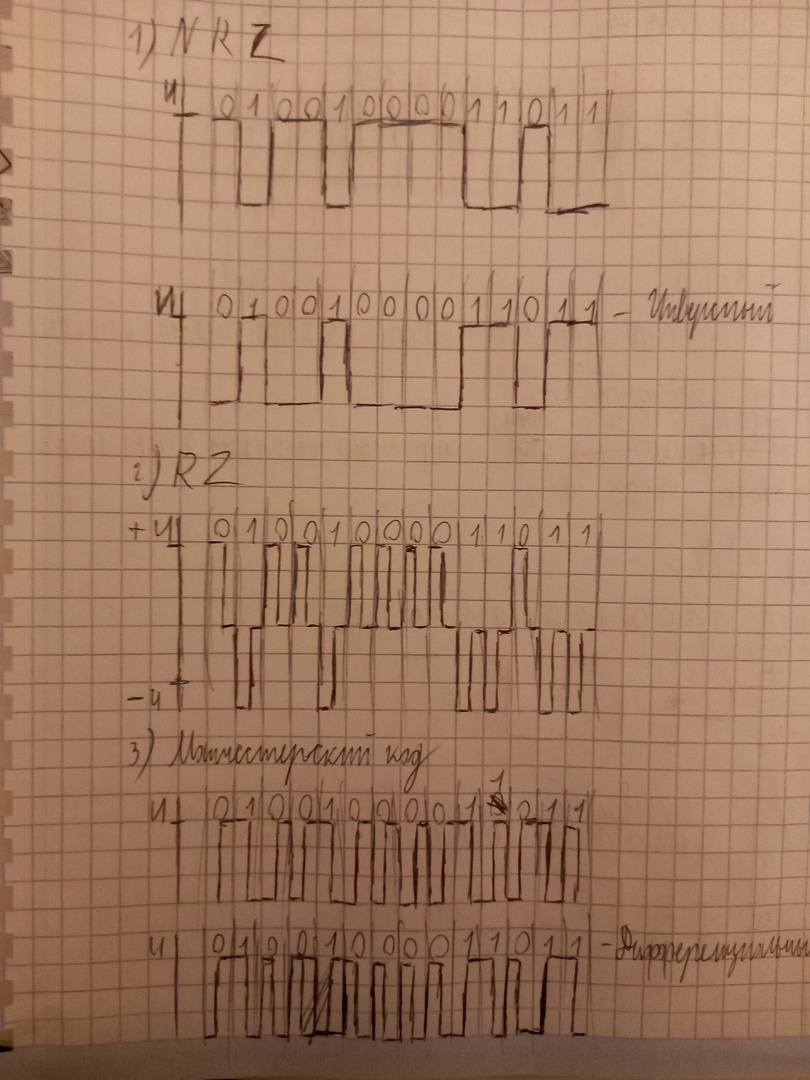 1) NRZ
И 0 1 0 0 1 0 0 0 0 1 1 0 1 1
И 0 1 0 0 1 0 0 0 0 1 1 0 1 1 -
2) RZ
+И 0 1 0 0 1 0 0 0 0 1 1 0 1 1
-И
3) Манчестерский код
И 0 1 0 0 1 0 0 0 0 1 1 0 1 1
И 0 1 0 0 1 0 0 0 0 1 1 0 1 1 - Дифференциальный